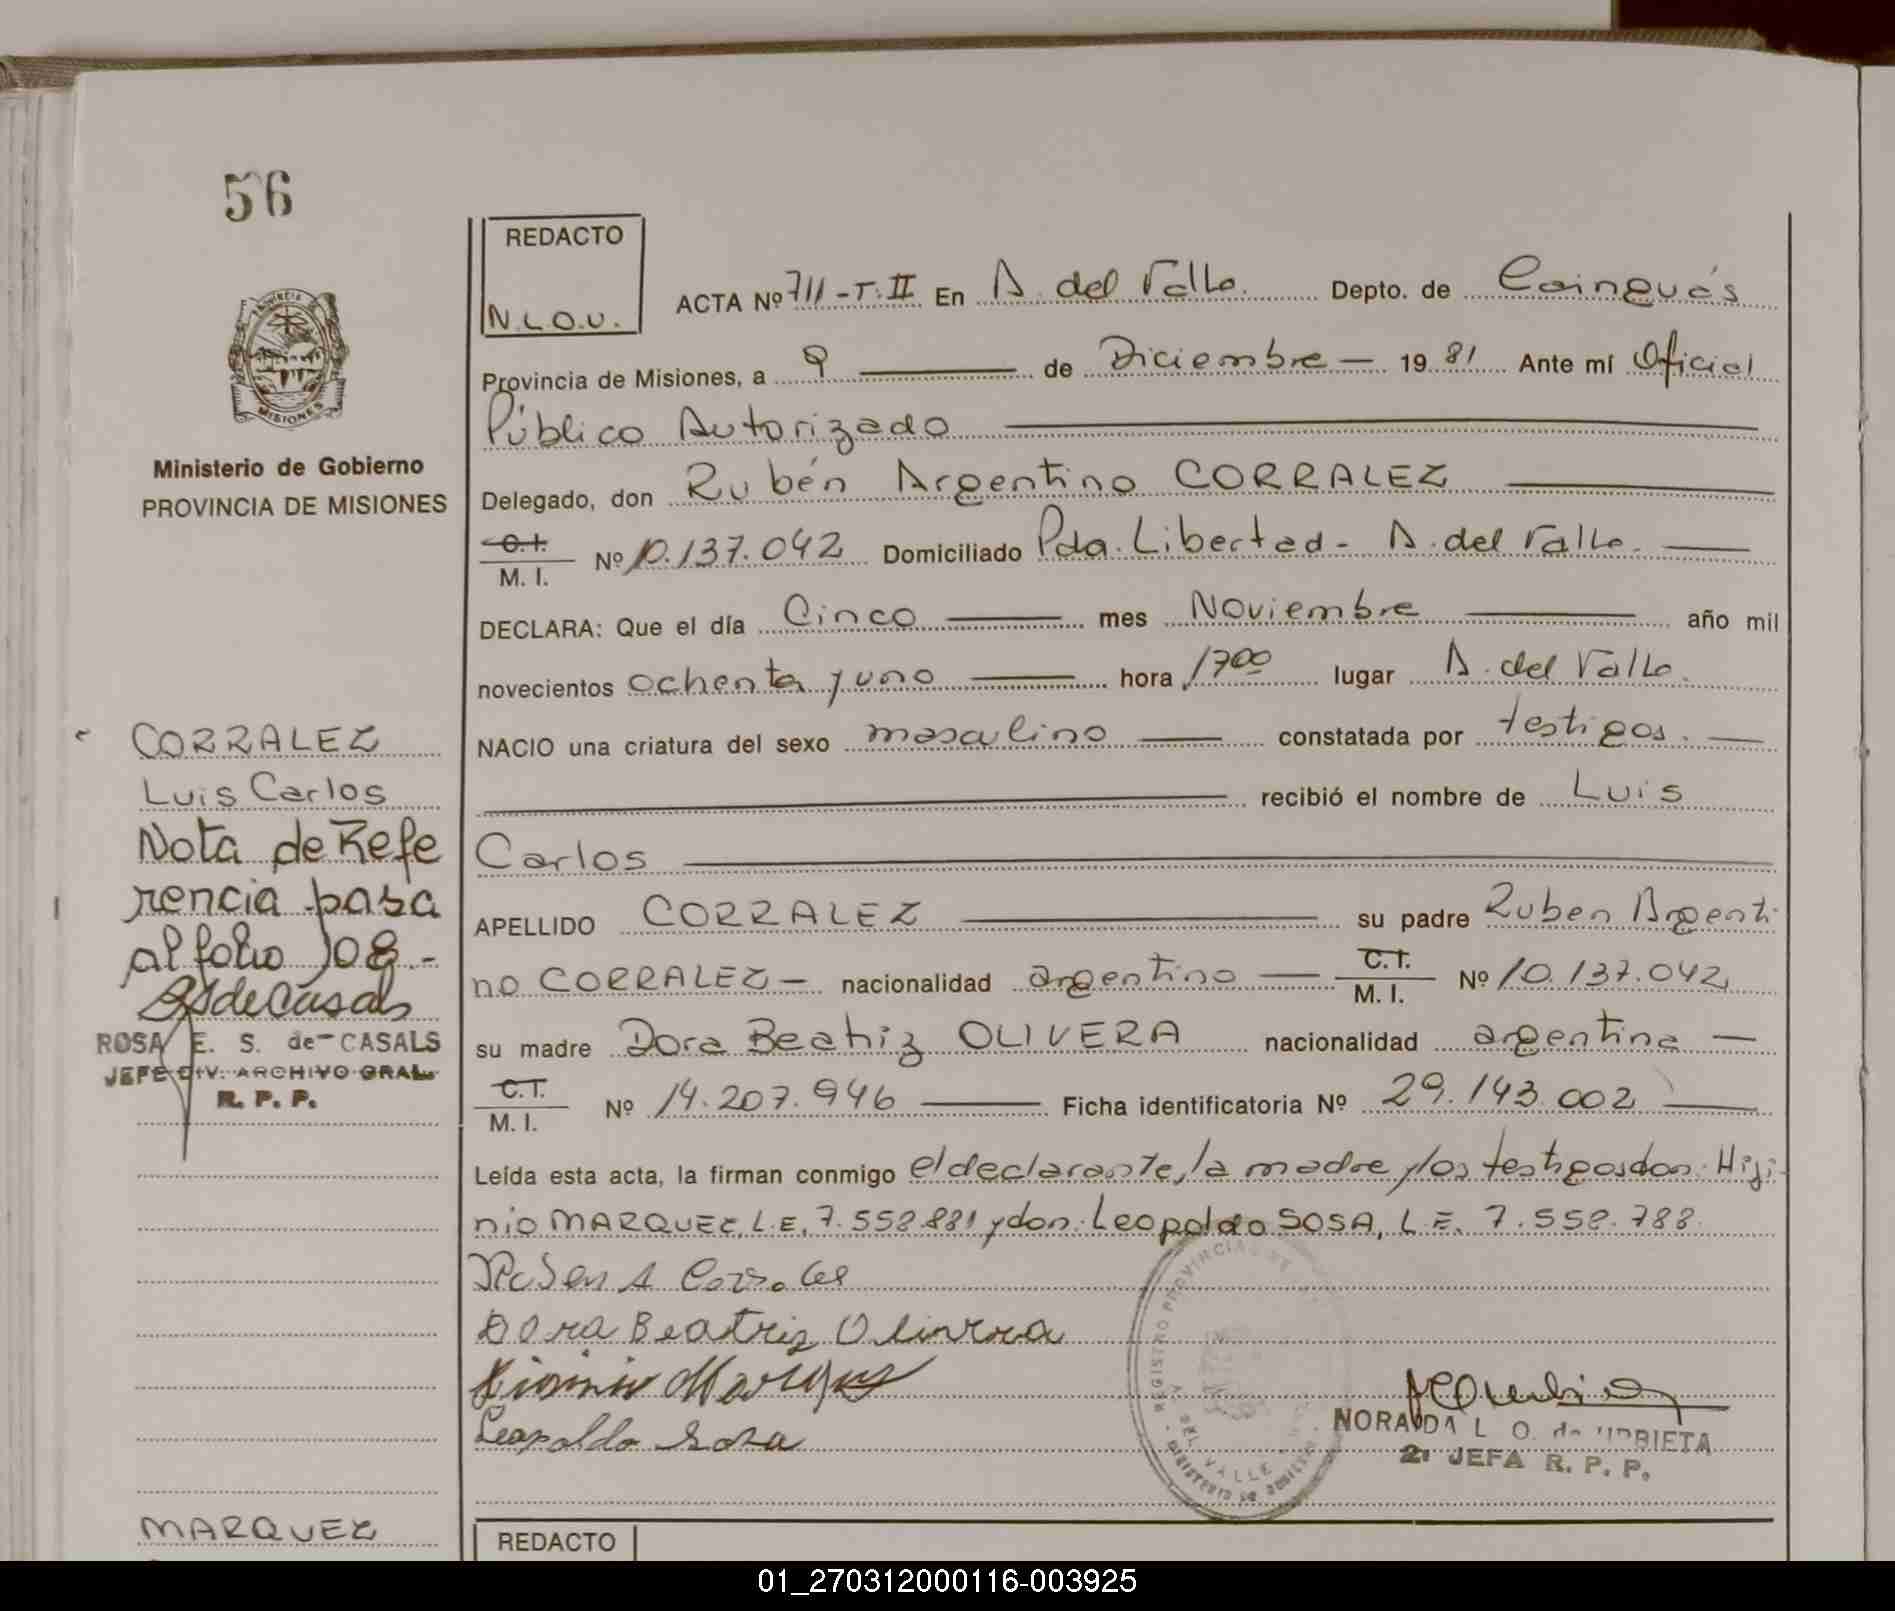 56
REDACTO
N.L.O.U.
ACTA Nº 711-T.II En A. del Valle. Depto. de Cainguás
Provincia de Misiones, a 9 de Diciembre 19 81 Ante mí Oficial
Público Autorizado
Delegado, don Rubén Argentino CORRALEZ
C.I.
M. I. Nº 10.137.042 Domiciliado Pda. Libertad - A. del Valle.
DECLARA: Que el día Cinco mes Noviembre año mil
novecientos ochenta y uno hora 1700 lugar A. del Valle.
NACIO una criatura del sexo masculino constatada por testigos.
recibió el nombre de Luis
Carlos
APELLIDO CORRALEZ su padre Ruben Argenti-
no CORRALEZ - nacionalidad argentino C.I.
M. I. Nº 10.137.042
su madre Dora Beatriz OLIVERA nacionalidad argentina
C.I.
M. I. Nº 14.207.946 Ficha identificatoria Nº 29.143.002
Leída esta acta, la firman conmigo el declarante, la madre y los testigos don: Higi-
nio MARQUEZ, L.E. 7.558.881 y don: Leopoldo SOSA, L.E. 7.558.788.
Ruben A Corralez
Dora Beatriz Olivera
Leopoldo Sosa
REGISTRO PROVINCIAL DE
A. DEL VALLE
NORAIDA L. O. de URRIETA
2ª JEFA R. P. P.
REDACTO
PROVINCIA DE
MISIONES
Ministerio de Gobierno
PROVINCIA DE MISIONES
CORRALEZ
Luis Carlos
Nota de Refe
rencia pasa
al folio 108.-
ESdeCasals
ROSA E. S. de CASALS
JEFE DIV. ARCHIVO GRAL.
R. P. P.
MARQUEZ
01_270312000116-003925